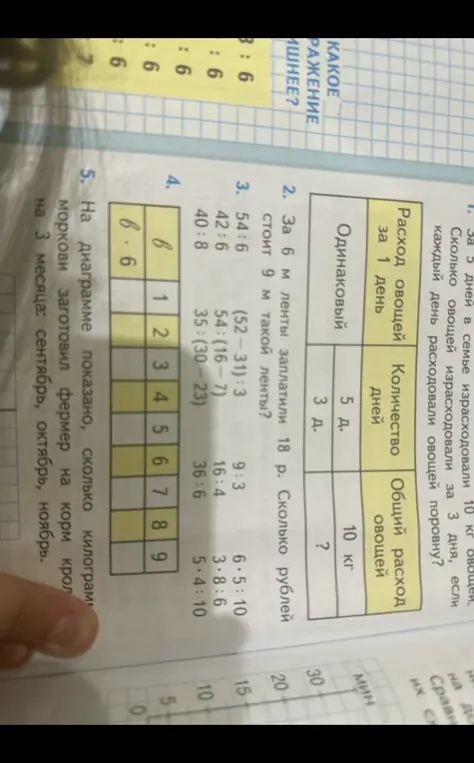 КАКОЕ
РАЖЕНИЕ
ИШНЕЕ?
3 : 6
: 6
: 6
: 6
: 6
7
1. За 5 дней в семье израсходовали 10 кг овощей.
Сколько овощей израсходовали за 3 дня, если
каждый день расходовали овощей поровну?
Расход овощей за 1 день Количество дней Общий расход овощей
Одинаковый 5 д. 10 кг
3 д. ?
2. За 6 м ленты заплатили 18 р. Сколько рублей
стоит 9 м такой ленты?
3. 54 : 6 (52 − 31) : 3 9 : 3 6 · 5 : 10
42 : 6 54 : (16 − 7) 16 : 4 3 · 8 : 6
40 : 8 35 : (30 − 23) 36 : 6 5 · 4 : 10
4. в 1 2 3 4 5 6 7 8 9
в · 6
5. На диаграмме показано, сколько килограмм
моркови заготовил фермер на корм крол
на 3 месяца: сентябрь, октябрь, ноябрь.
мин
30
20
15
10
5
0
Сравн
их с